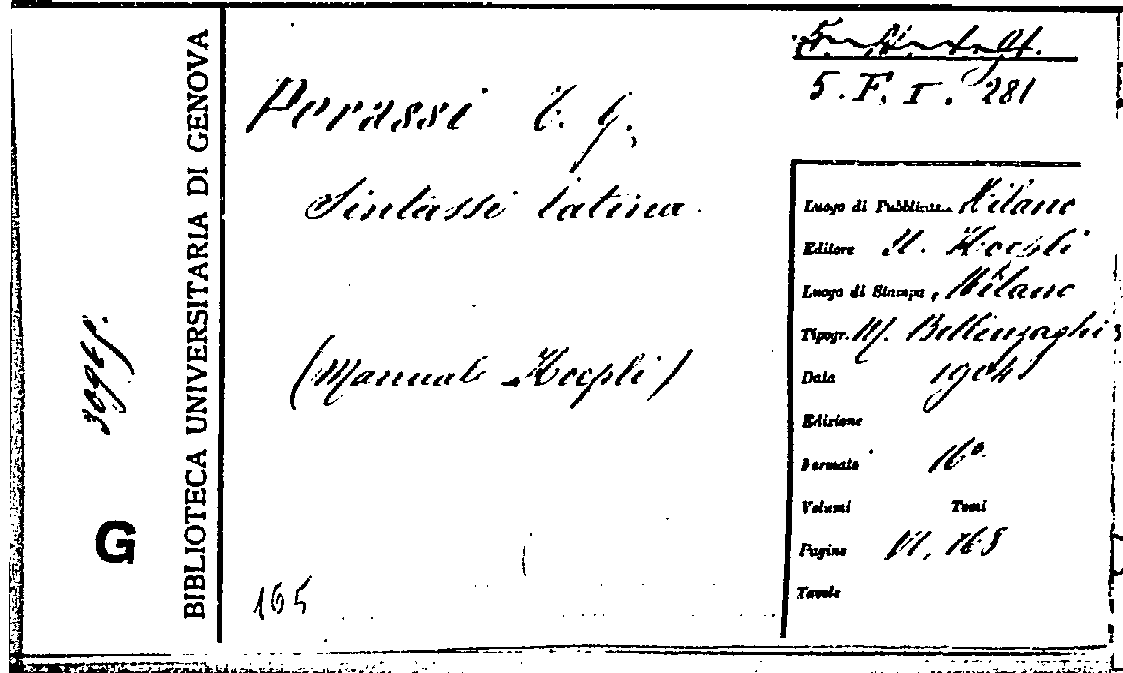 BIBLIOTECA UNIVERSITARIA DI GENOVA
G
5. F. I. 281
Perassi T. G.
Sintassi latina.
(Manuale Hoepli)
165
Luogo di Pubblicaz. Milano
Editore U. Hoepli
Luogo di Stampa, Milano
Tipogr. M. Bellinzaghi
Data 1904
Edizione
Formato 16º
Volumi Tomi
Pagine VI, 168
Tavole